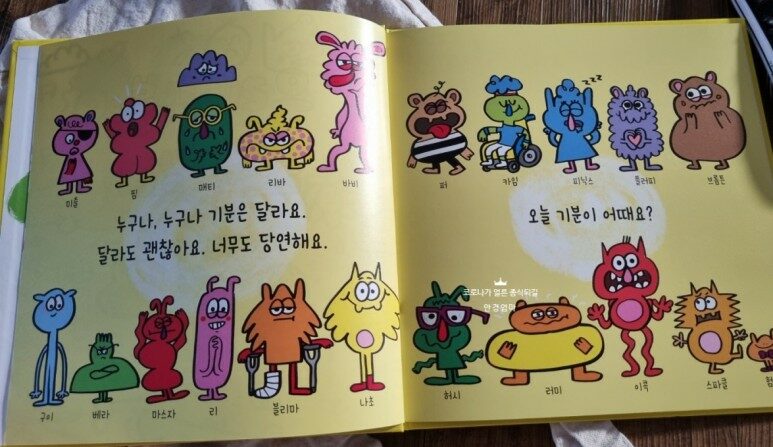 매티
리바
바비
누구나, 누구나 기분은 달라요.
달라도 괜찮아요. 너무도 당연해요.
구이
베라
마스자
리
블리마
나초
zzz
퍼
카임
피닉스
플러피
브롬튼
오늘 기분이 어때요?
코로나가 얼른 종식되길
안경엄마
허시
러미
이콕
스파클